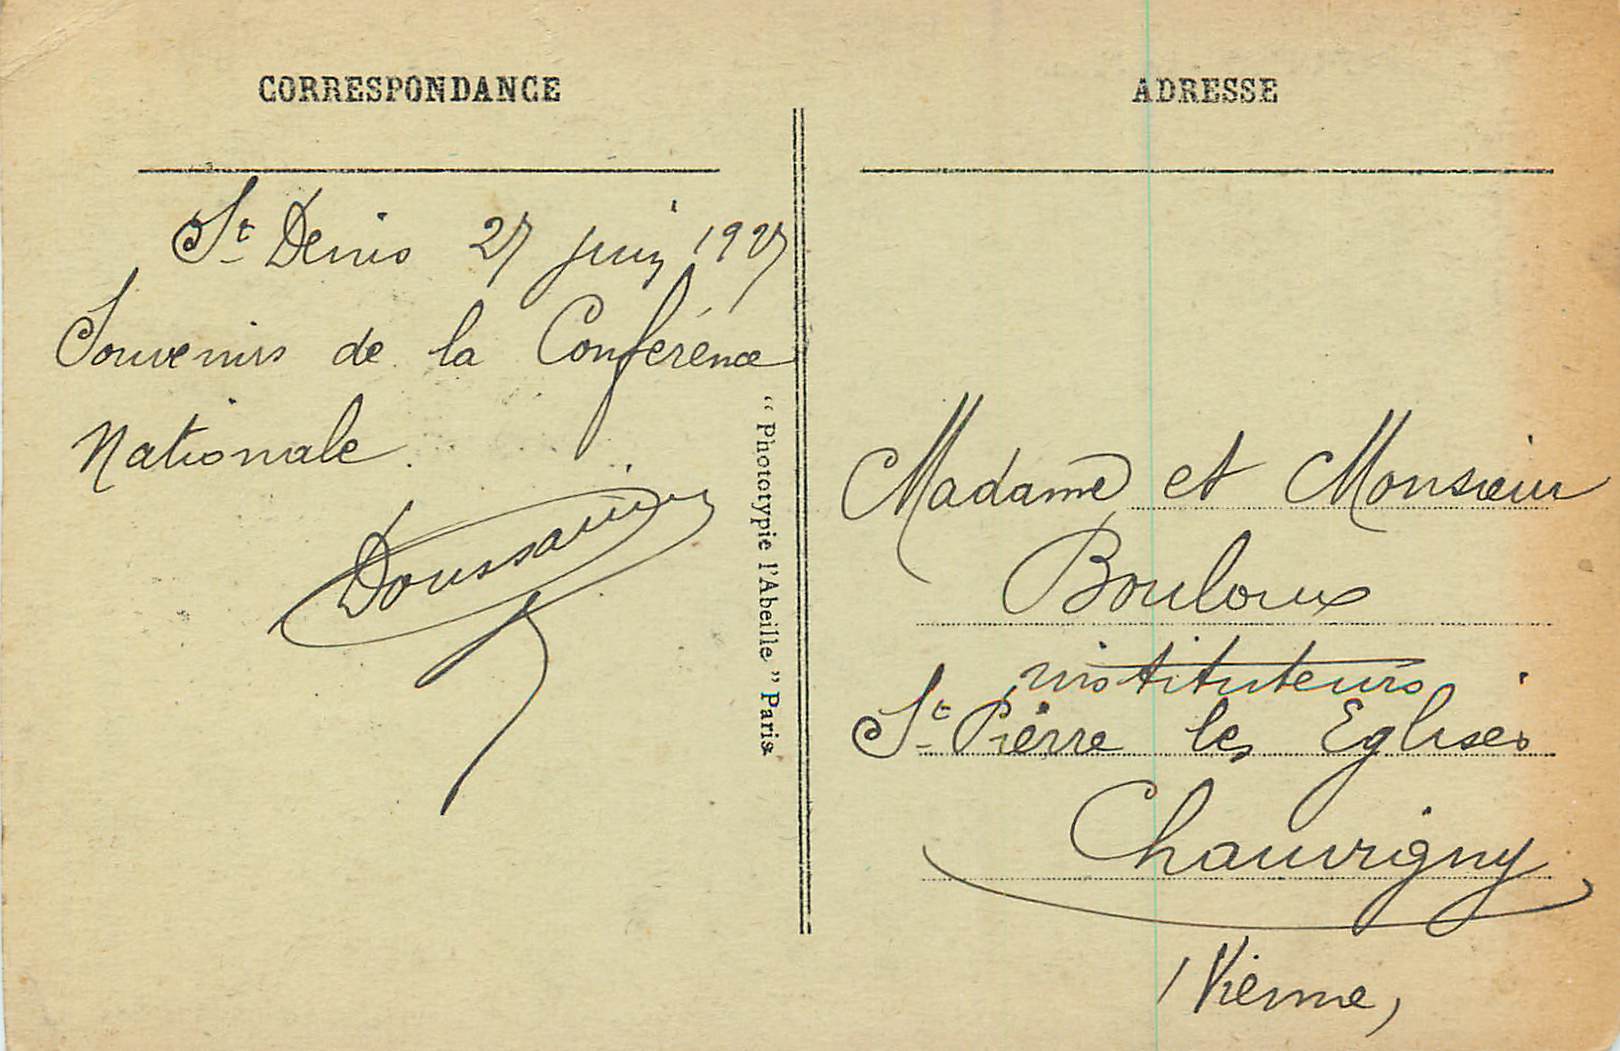 CORRESPONDANCE
St Denis 27 juin 1927
Souvenirs de la Conférence
Nationale.
" Phototypie l'Abeille " Paris
ADRESSE
Madame et Monsieur
Bouloux
instituteurs
St Pierre les Eglises
Chauvigny
(Vienne)